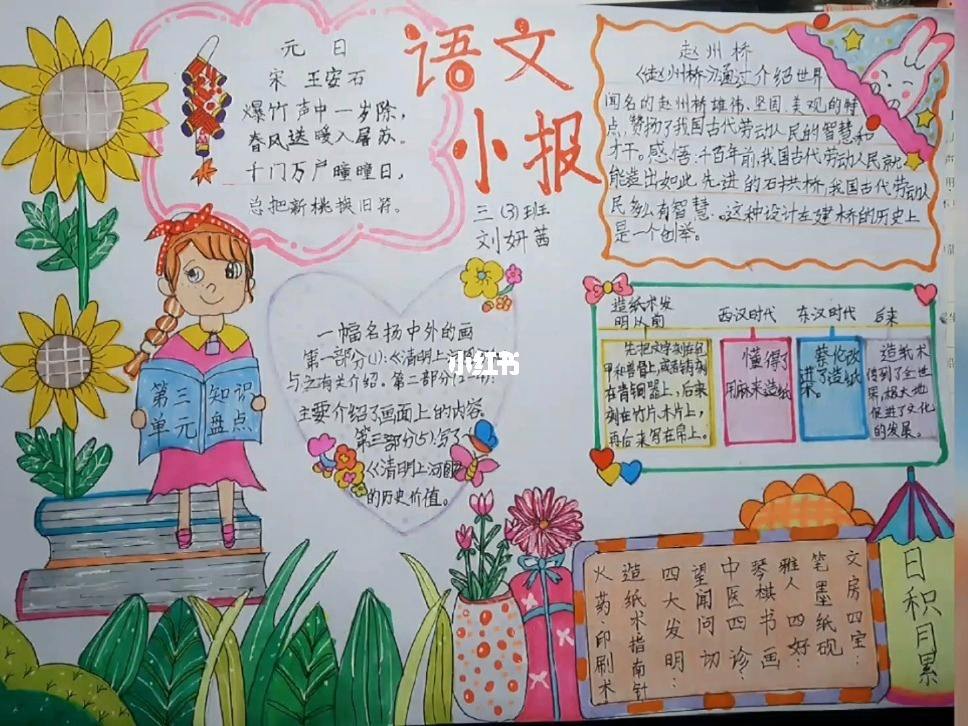 语文
小报
三(3)班
刘妍茜
元日
宋 王安石
爆竹声中一岁除,
春风送暖入屠苏.
千门万户曈曈日,
总把新桃换旧符.
赵州桥
《赵州桥》通过介绍世界
闻名的赵州桥雄伟、坚固、美观的特
点,赞扬了我国古代劳动人民的智慧和
才干。感悟:千百年前,我国古代劳动人民就
能造出如此先进的石拱桥,我国古代劳动人
民多么有智慧.这种设计在建桥的历史上
是一个创举。
第三单元
知识盘点
一幅名扬中外的画
第一部分(1):《清明上
与之有关介绍。第二部分(2-4):
主要介绍了画面上的内容.
第三部分(5),写了
《清明上河图
的历史价值。
小红书
造纸术发
明以前
先把文字刻在龟
甲和兽骨上,或者铸刻
在青铜器上,后来
刻在竹片、木片上,
再后来写在帛上。
西汉时代
懂得了
用麻来造纸
东汉时代
蔡伦改
进了造纸
术。
后来
造纸术
传到了全世
界,极大地
促进了文化
的发展。
日积月累
文房四宝:
笔墨纸砚
雅人四好:
琴棋书画
中医四诊:
望闻问切
四大发明:
造纸术指南针
火药印刷术